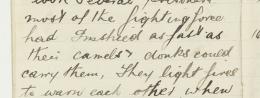 work several prisoners
most of the fighting force
had finished as fast as
their camels & donks could
carry them, They light fires
to warn each other when